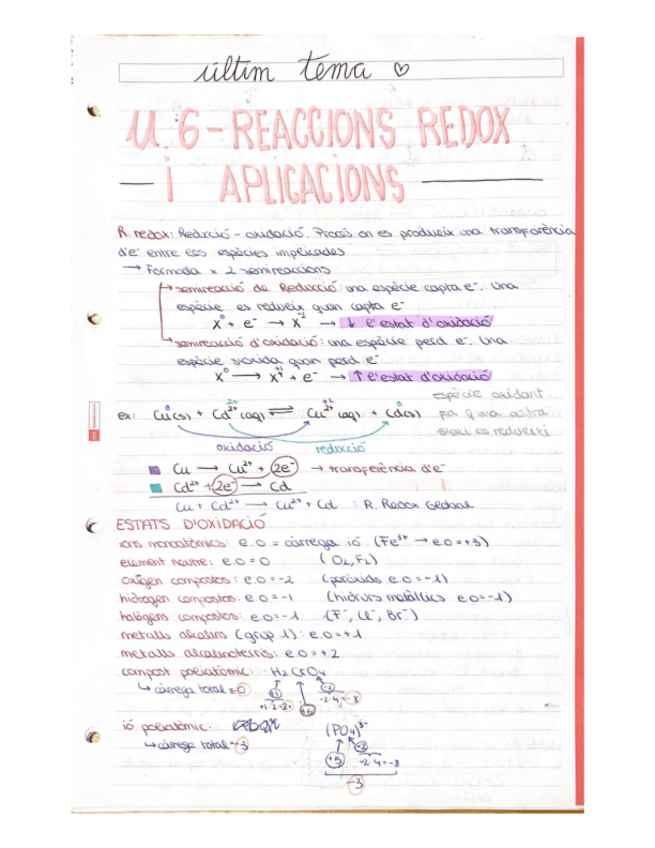 últim tema ♡
U.6-REACCIONS REDOX
i APLICACIONS
R. redox: Reducció - oxidació. Procés on es produeix una transferència
d'e⁻ entre les espècies implicades
→ Formada x 2 semireaccions
semireacció de Reducció: una espècie capta e⁻. Una
espècie es redueix quan capta e⁻
X⁰ + e⁻ → X⁻¹ → ↓ l'estat d'oxidació
semireacció d'oxidació: una espècie perd e⁻. Una
espècie s'oxida quan perd e⁻
X⁰ → X⁺¹ + e⁻ → ↑ l'estat d'oxidació
espècie oxidant:
ex: Cu(s) + Cd²⁺(aq) ⇌ Cu²⁺(aq) + Cd(s)
fa q una altra
oxidació reducció
Cu → Cu²⁺ + 2e⁻ → transferència d'e⁻
Cd²⁺ + 2e⁻ → Cd
Cu + Cd²⁺ → Cu²⁺ + Cd : R. Redox Global
ESTATS D'OXIDACIÓ
ions monoatòmics: e.o = càrrega ió (Fe³⁺ → e.o=+3)
element neutre: e.o=0 (O₂, F₂)
oxígen compostos: e.o=-2 (peròxids e.o=-1)
hidrogen compostos: e.o=-1 (hidrurs metàl·lics e.o=-1)
halògens compostos: e.o=-1 (F⁻, Cl⁻, Br⁻)
metalls alcalins (grup 1): e.o=+1
metalls alcalinoterris: e.o=+2
compost poliatòmic: H₂CrO₄
↳ càrrega total=0 +1 -2
+1·2=2+ +6 -2·4=-8
ió poliatòmic: (PO₄)³⁻
↳ càrrega total -3 -2
+5 -2·4=-8
-3